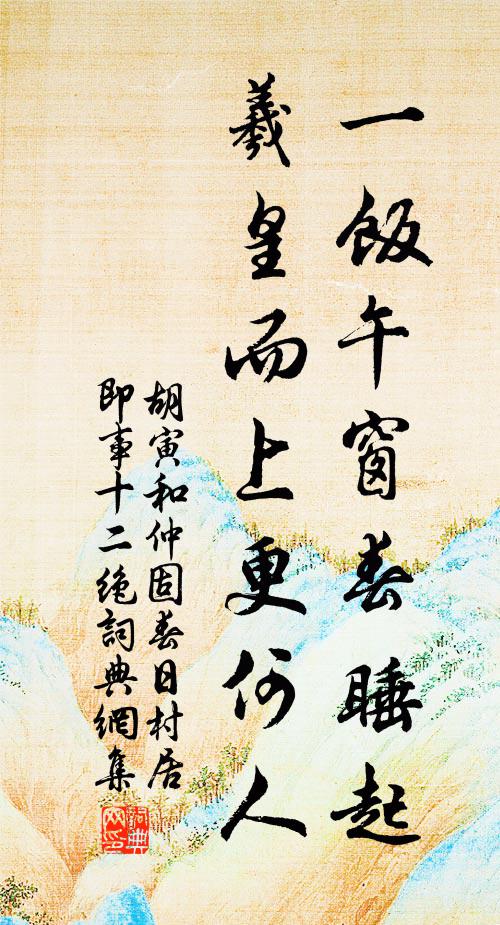 一飯午窗春睡起
羲皇而上更何人
胡寅和仲固春日村居
即事十二絶詞典網集
詞典
网印